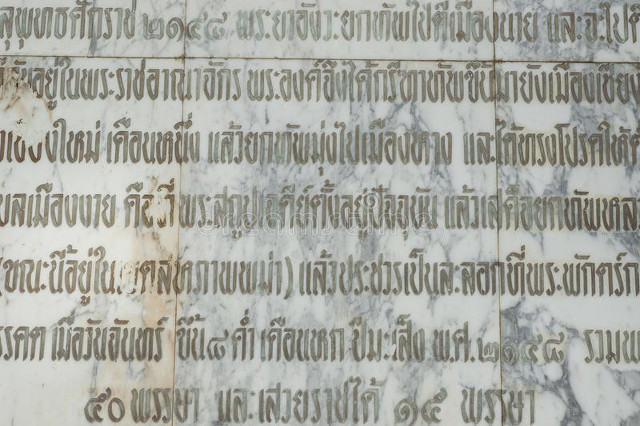 สุพุทธศักราช ๒๑๔๘ พระยาอังวะยกทัพไปตีเมืองนาย และจะไปร
อยู่ในพระราชอาณาจักร พระองค์จึงได้กรีฑาทัพขึ้นมายังเมืองเชียง
เชียงใหม่ เดือนหนึ่ง แล้วยกทัพมุ่งไปเมืองหาง และได้ทรงโปรดให้
เมืองงาย คือ ที่พระสถูปเจดีย์ตั้งอยู่ปัจจุบัน แล้วเสด็จยกทัพหล
(ขณะนี้อยู่ใน สหภาพพม่า) แล้วประชวรเป็นละลอกที่พระพักตร์
รคต เมื่อวันจันทร์ ขึ้น ๘ ค่ำ เดือนหก ปีมะเส็ง พ.ศ. ๒๑๔๘ รวมพ
๕๐ พรรษา และเสวยราชได้ ๑๕ พรรษา